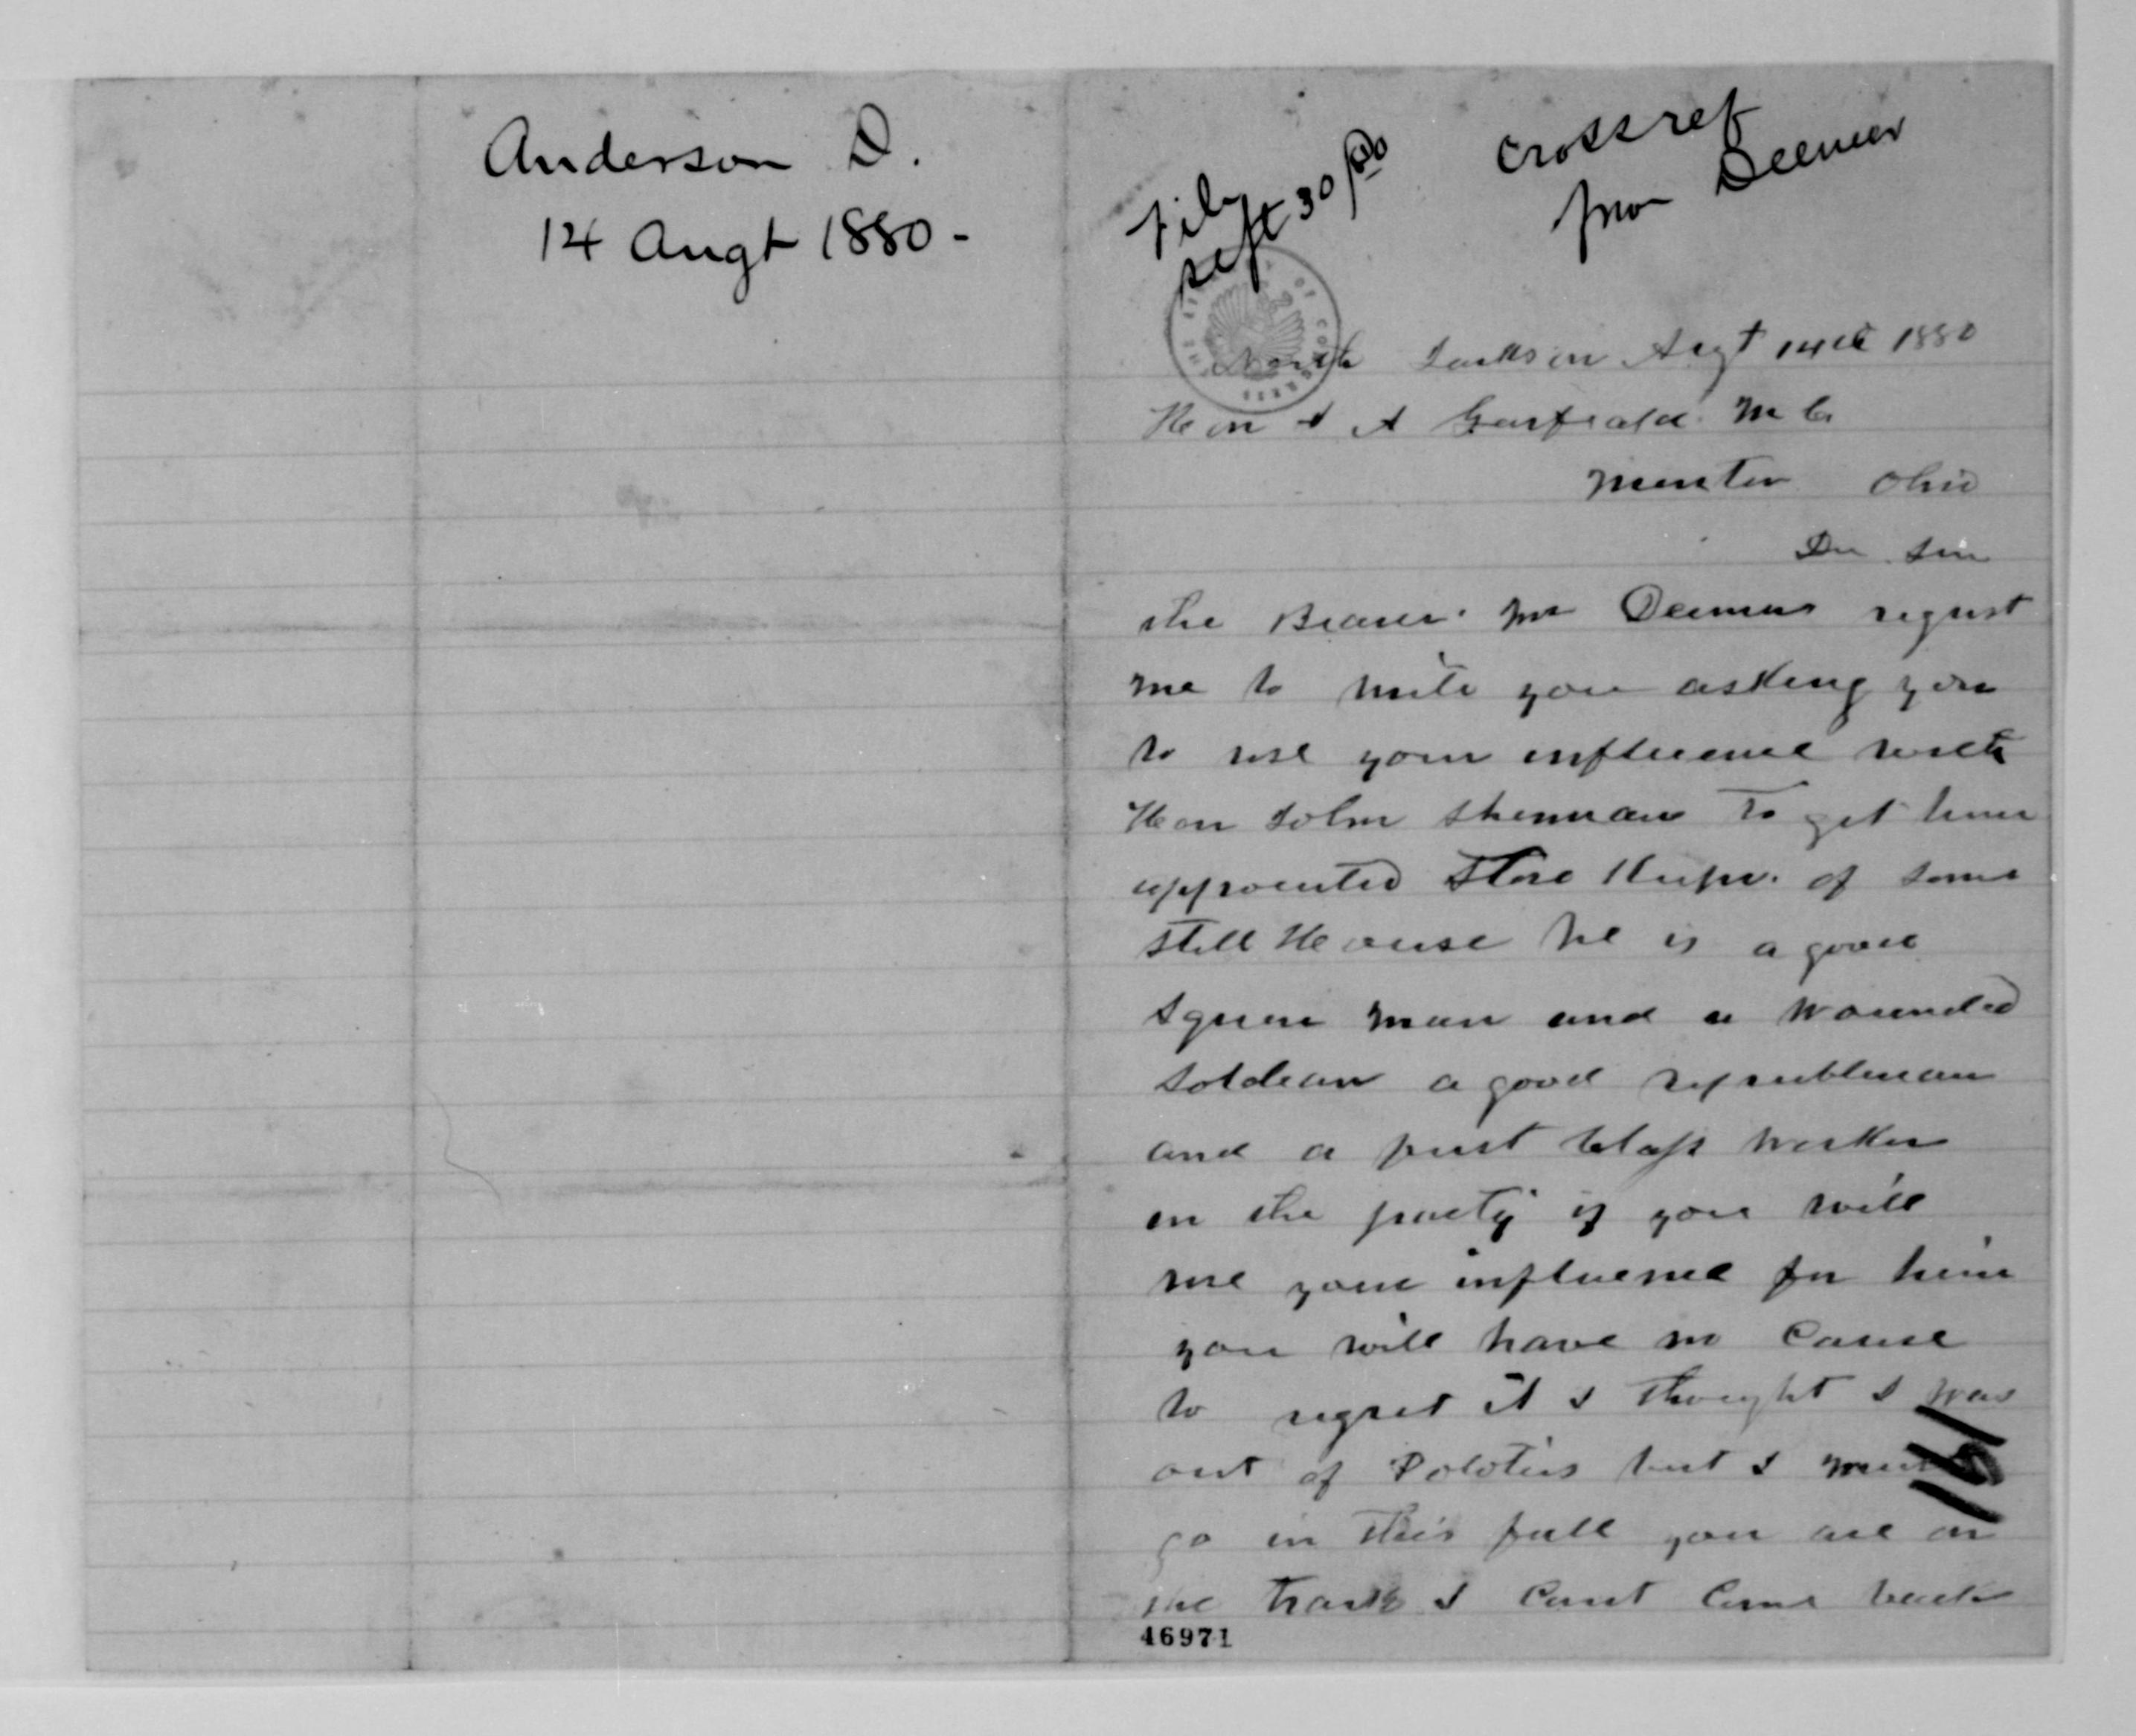 Anderson D.
14 Augt 1880 -
File
Sept 30/80
Cross ref
from Deemer
THE LIBRARY OF CONGRESS
North Jackson Augt 14th 1880
Hon J A Garfield M C
Mentor Ohio
Dr Sir
the Bearer Mr Deemer request
me to write you asking you
to use your influence with
Hon John Sherman To get him
appointed Store Keeper of some
Still House he is a good
Square man and a wounded
Soldier a good republican
and a first Class worker
in the party if you will
use your influence for him
you will have no Cause
to regret it I thought I was
out of Polotics but I must
go in this fall you are on
the track I Cant Come back
161
46971